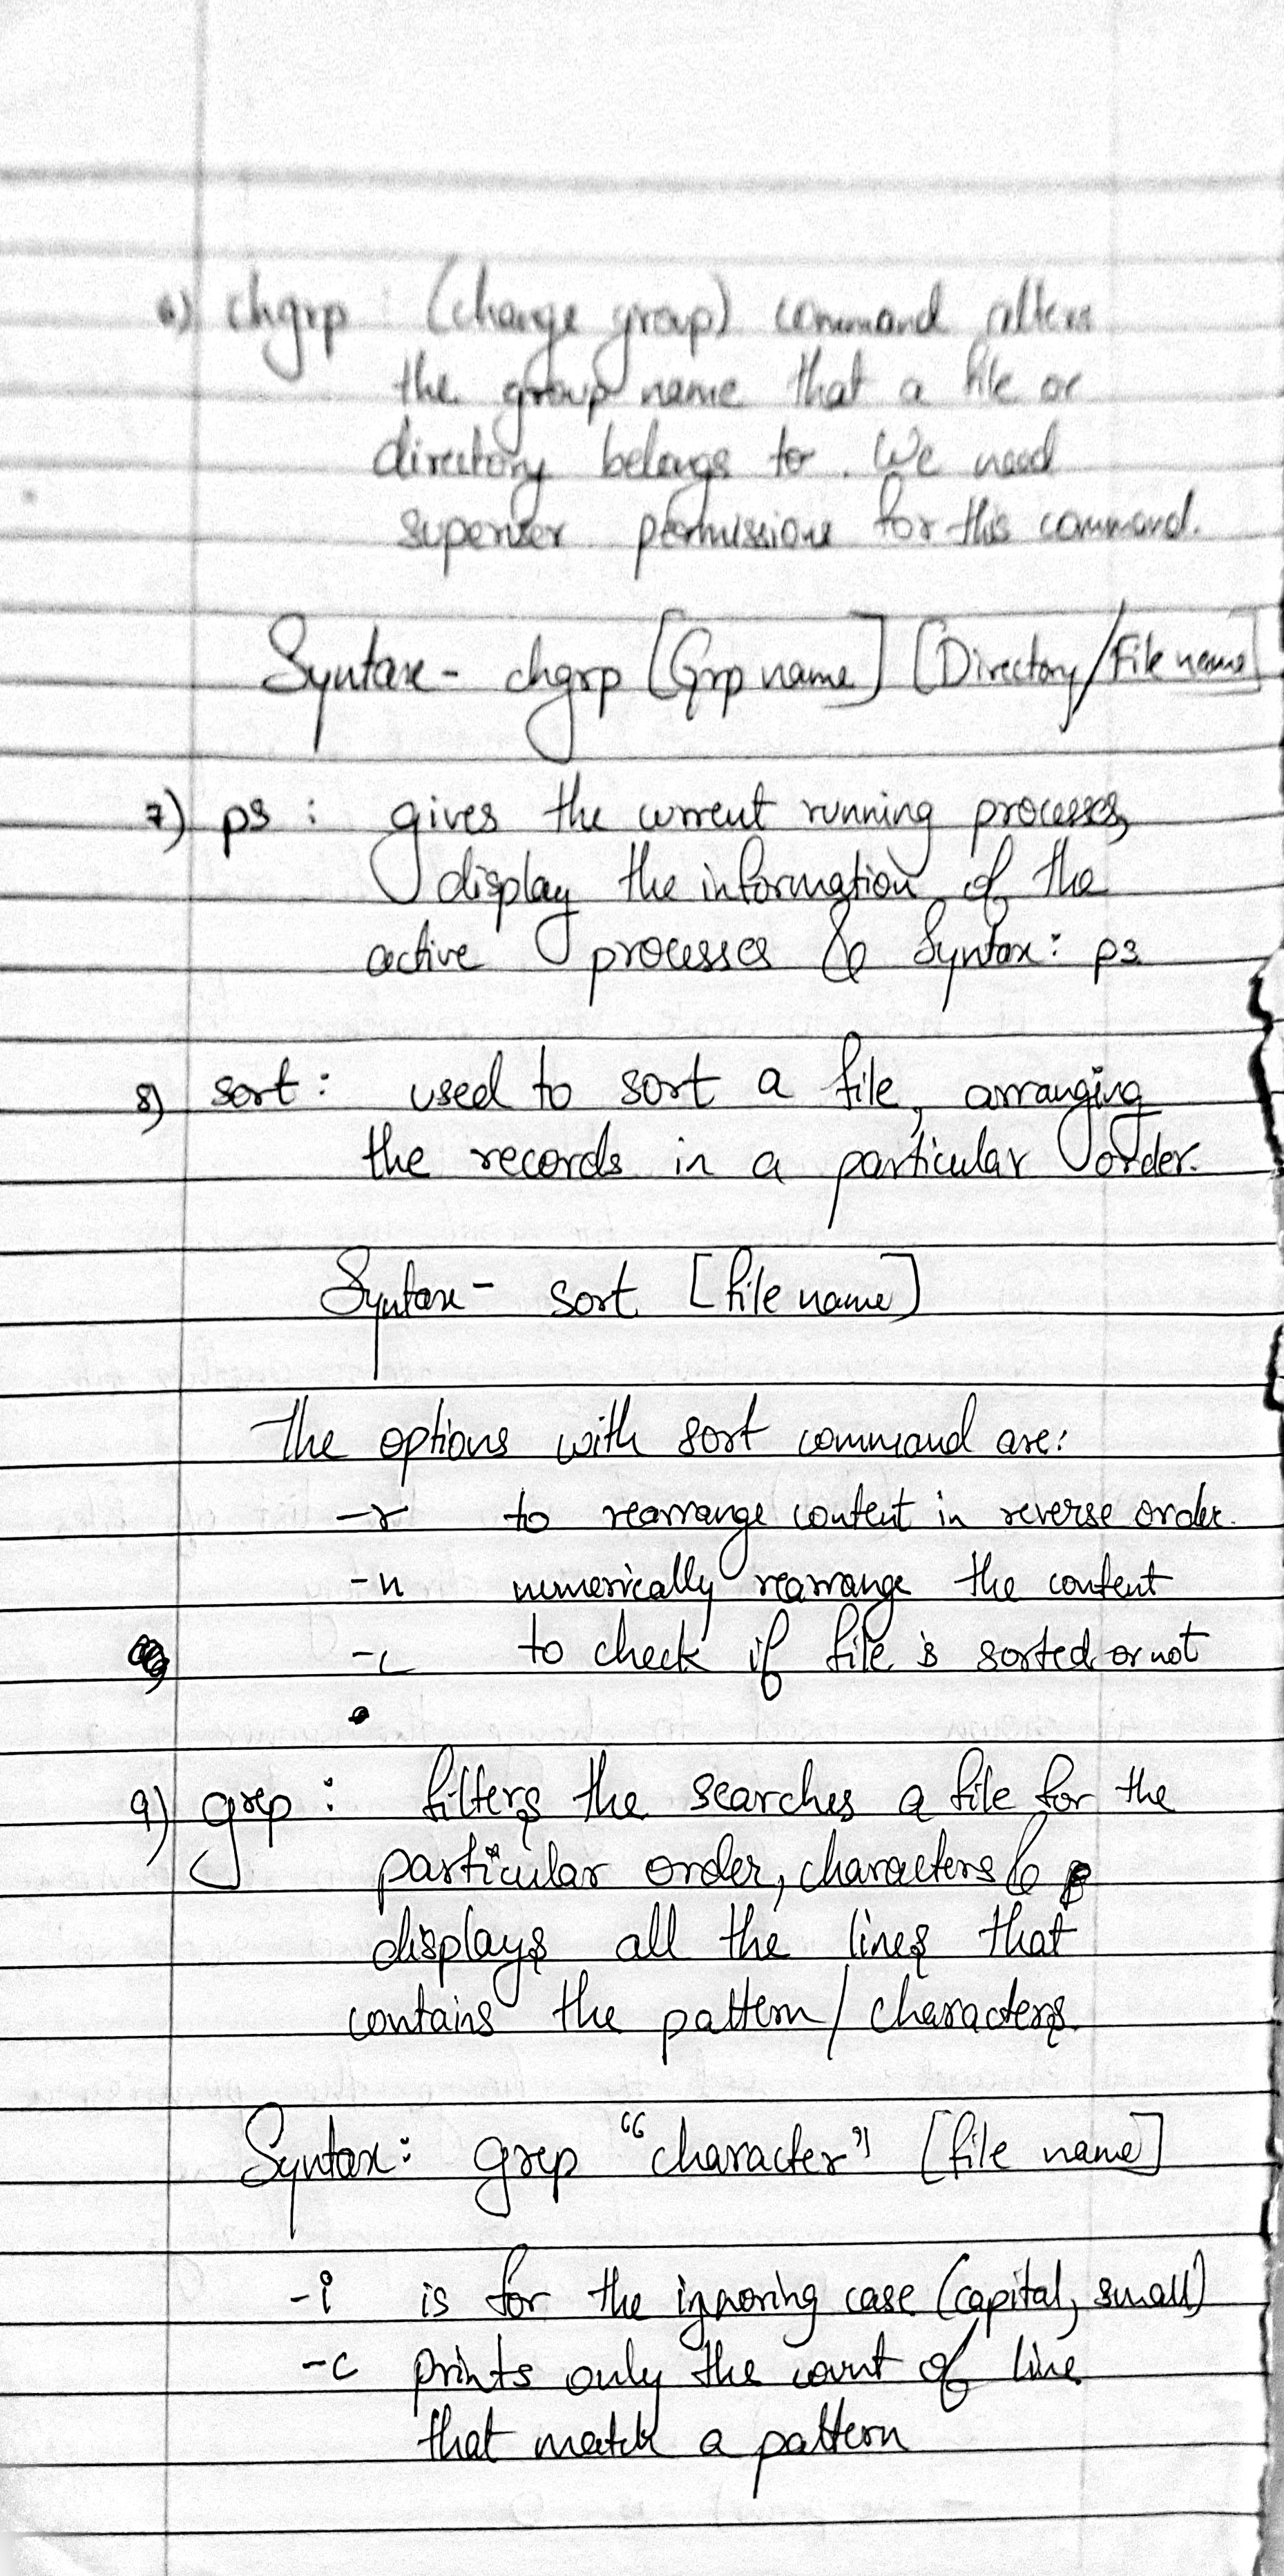 6) chgrp : (change group) command alters
the group name that a file or
directory belongs to. We need
superuser permissions for this command.
Syntax- chgrp [Grp name] [Directory/File name]
7) ps : gives the current running processes,
display the information of the
active processes & Syntax: ps
8) sort : used to sort a file, arranging
the records in a particular order.
Syntax- sort [file name]
The options with sort command are:
-r to rearrange content in reverse order.
-n numerically rearrange the content
-c to check if file is sorted or not
9) grep : filters the searches a file for the
particular order, characters &
displays all the lines that
contains the pattern/characters.
Syntax: grep "character" [file name]
-i is for the ignoring case (capital, small)
-c prints only the count of line
that match a pattern